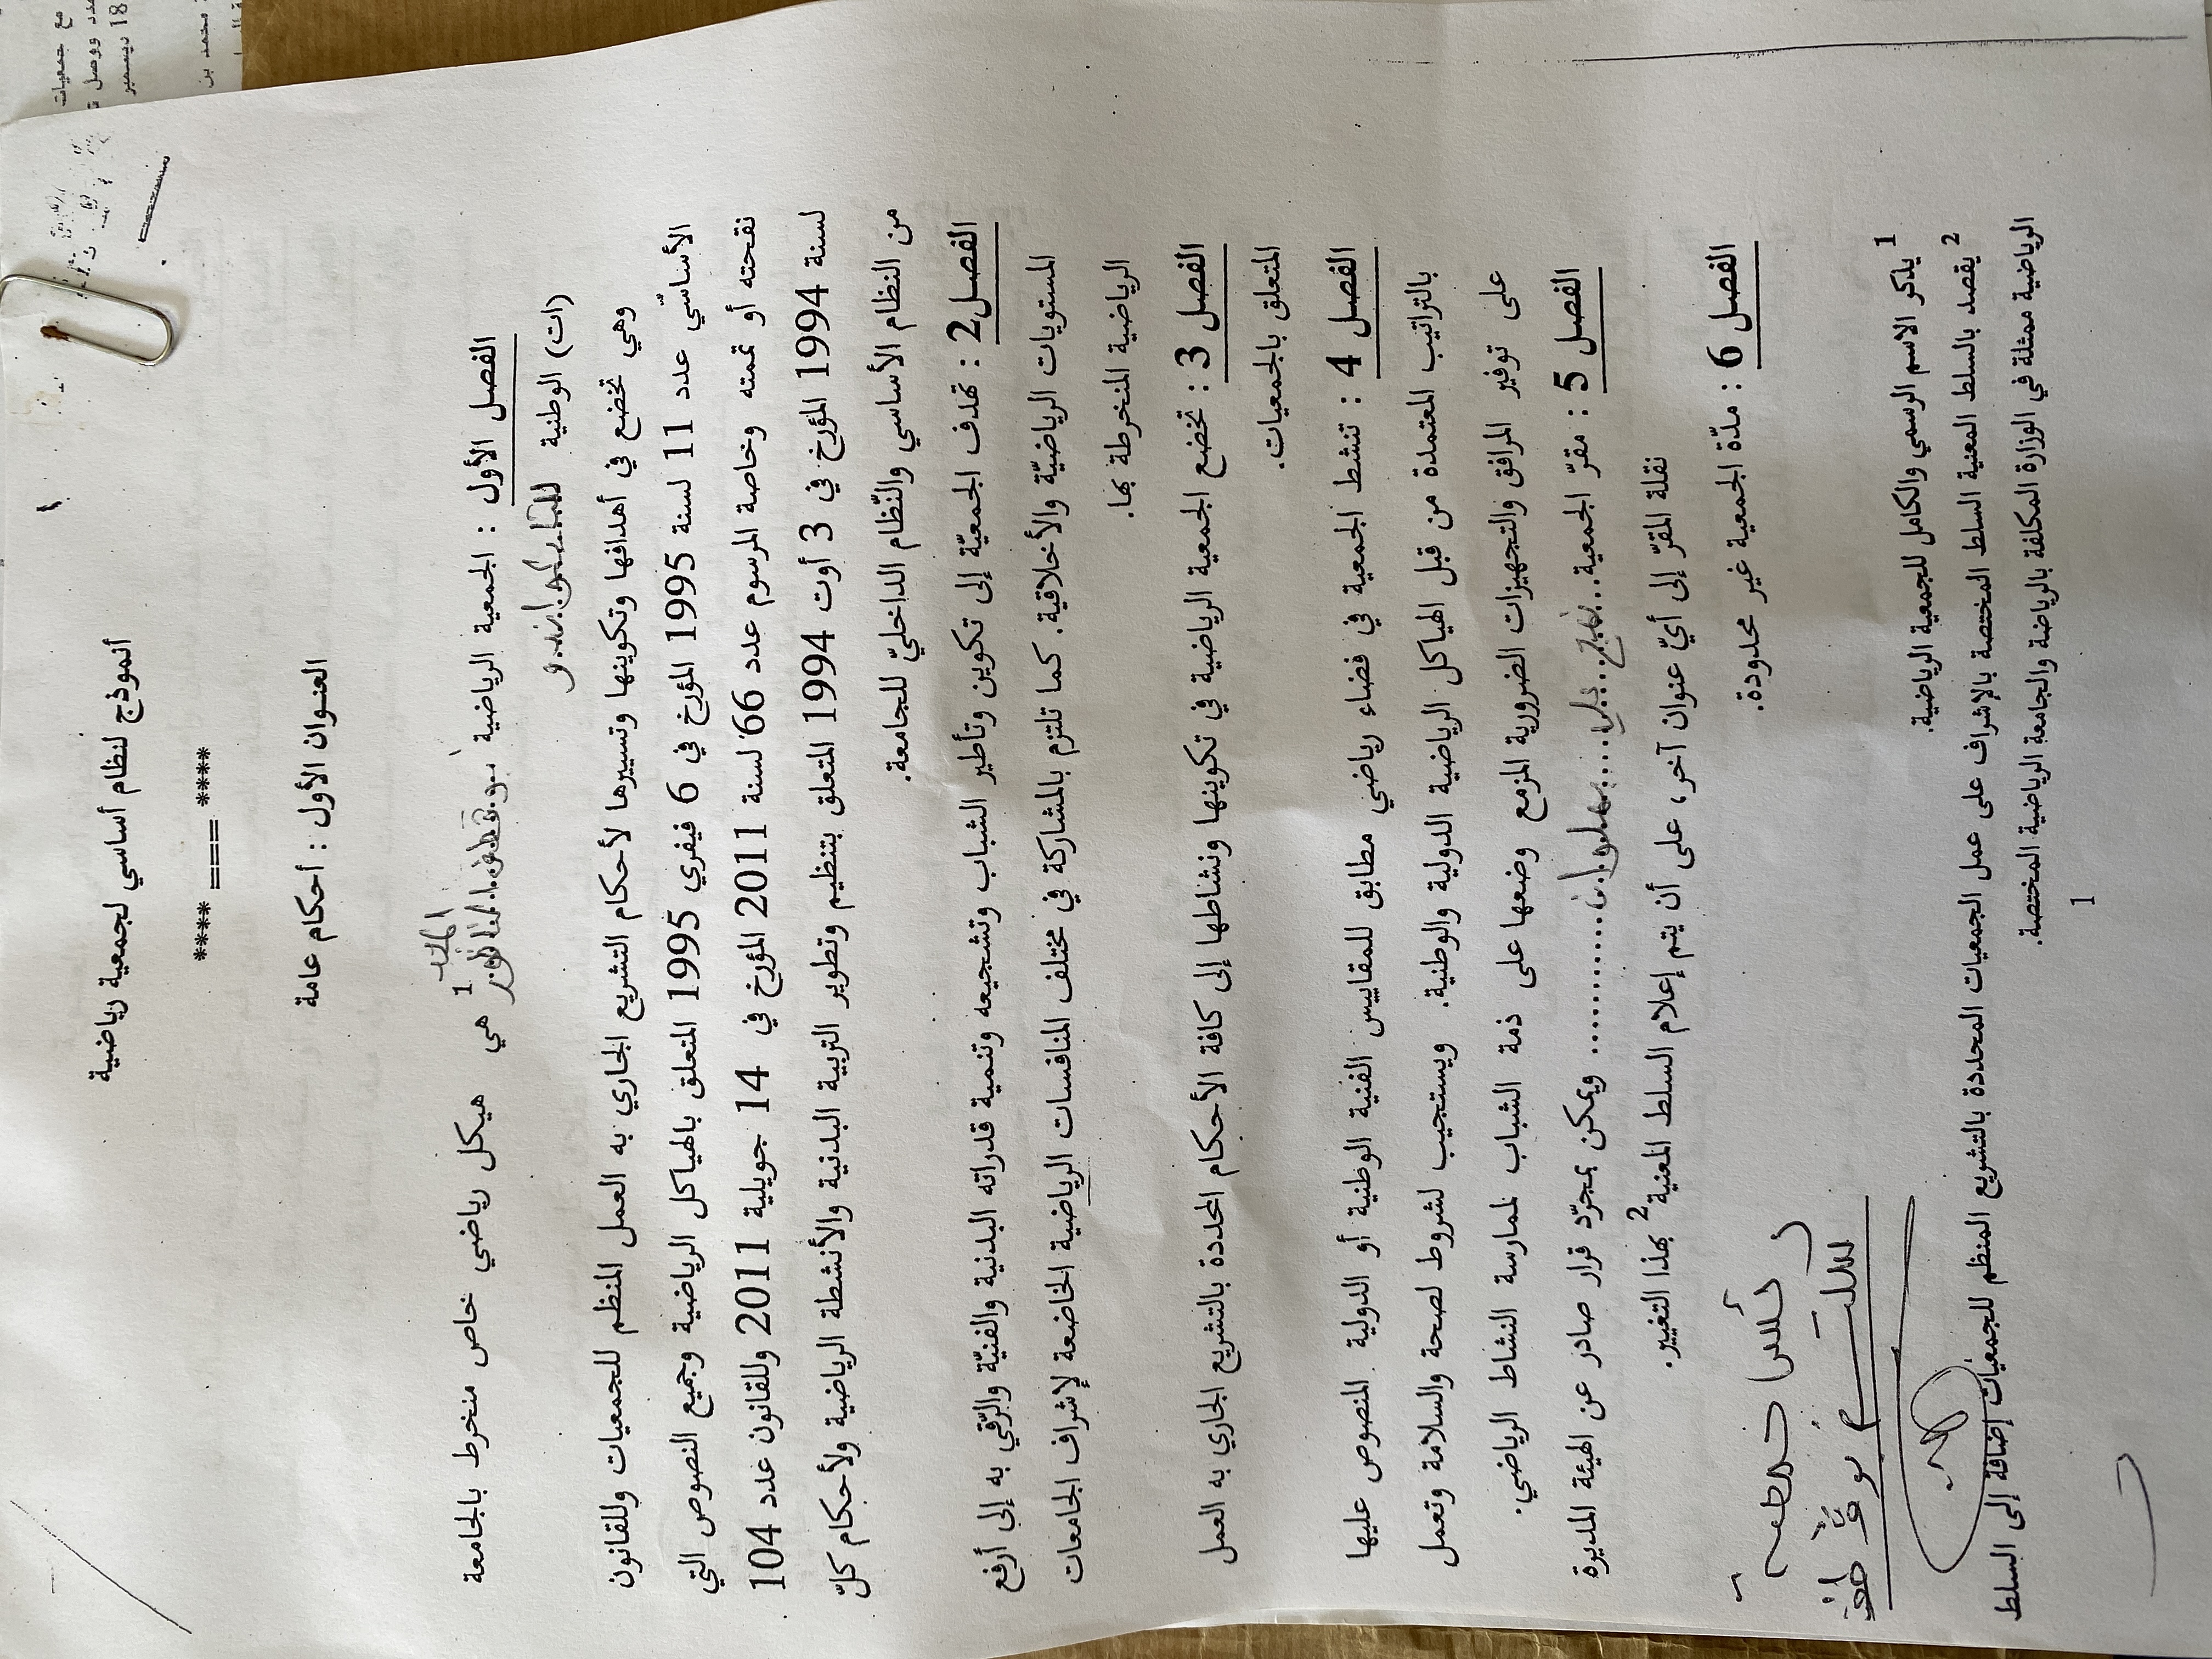 أنموذج لنظام أساسي لجمعية رياضية
**** === ****
العنوان الأول : أحكام عامة
الفصل الأول : الجمعية الرياضية 1 هي هيكل رياضي خاص منخرط بالجامعة
(ات) الوطنية للتايكواندو
وهي تخضع في أهدافها وتكوينها وتسييرها لأحكام التشريع الجاري به العمل المنظم للجمعيات وللقانون
الأساسّي عدد 11 لسنة 1995 المؤرخ في 6 فيفري 1995 المتعلق بالهياكل الرياضية وجميع النصوص التي
نقحته أو تممته وخاصة المرسوم عدد 66 لسنة 2011 المؤرخ في 14 جويلية 2011 وللقانون عدد 104
لسنة 1994 المؤرخ في 3 أوت 1994 المتعلق بتنظيم وتطوير التربية البدنية والأنشطة الرياضية ولأحكام كلّ
من النظام الأساسي والنّظام الداخليّ للجامعة.
الفصل2 : تهدف الجمعيّة إلى تكوين وتأطير الشباب وتشجيعه وتنمية قدراته البدنية والفنيّة والرّقي به إلى أرفع
المستويات الرياضيّة والأخلاقية. كما تلتزم بالمشاركة في مختلف المنافسات الرياضية الخاضعة لإشراف الجامعات
الرياضية المنخرطة بها.
الفصل 3 : تخضع الجمعية الرياضية في تكوينها ونشاطها إلى كافة الأحكام المحددة بالتشريع الجاري به العمل
المتعلق بالجمعيات.
الفصل 4 : تنشط الجمعية في فضاء رياضي مطابق للمقاييس الفنية الوطنية أو الدولية المنصوص عليها
بالتراتيب المعتمدة من قبل الهياكل الرياضية الدولية والوطنية. ويستجيب لشروط لصحة والسلامة وتعمل
على توفير المرافق والتجهيزات الضرورية المزمع وضعها على ذمة الشباب لممارسة النشاط الرياضي.
الفصل 5 : مقرّ الجمعية ............ ويمكن بمجرّد قرار صادر عن الهيئة المديرة
نقلة المقرّ إلى أيّ عنوان آخر، على أن يتم إعلام السلط المعنية 2 بهذا التغيير.
الفصل 6 : مدّة الجمعية غير محدودة.
1 يذكر الاسم الرسمي والكامل للجمعية الرياضية.
2 يقصد بالسلط المعنية السلط المختصة بالإشراف على عمل الجمعيات المحددة بالتشريع المنظم للجمعيات إضافة إلى السلط
الرياضية ممثلة في الوزارة المكلفة بالرياضة والجامعة الرياضية المختصة.
1